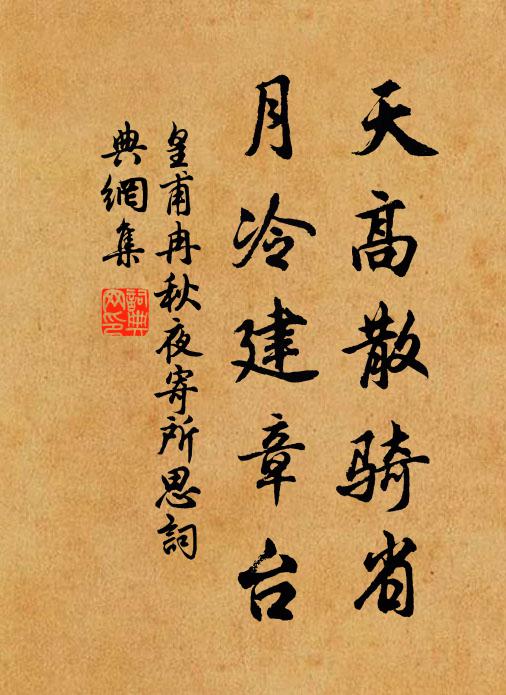 天高散骑省
月冷建章台
皇甫冉秋夜寄所思詞
典網集
詞典
网印